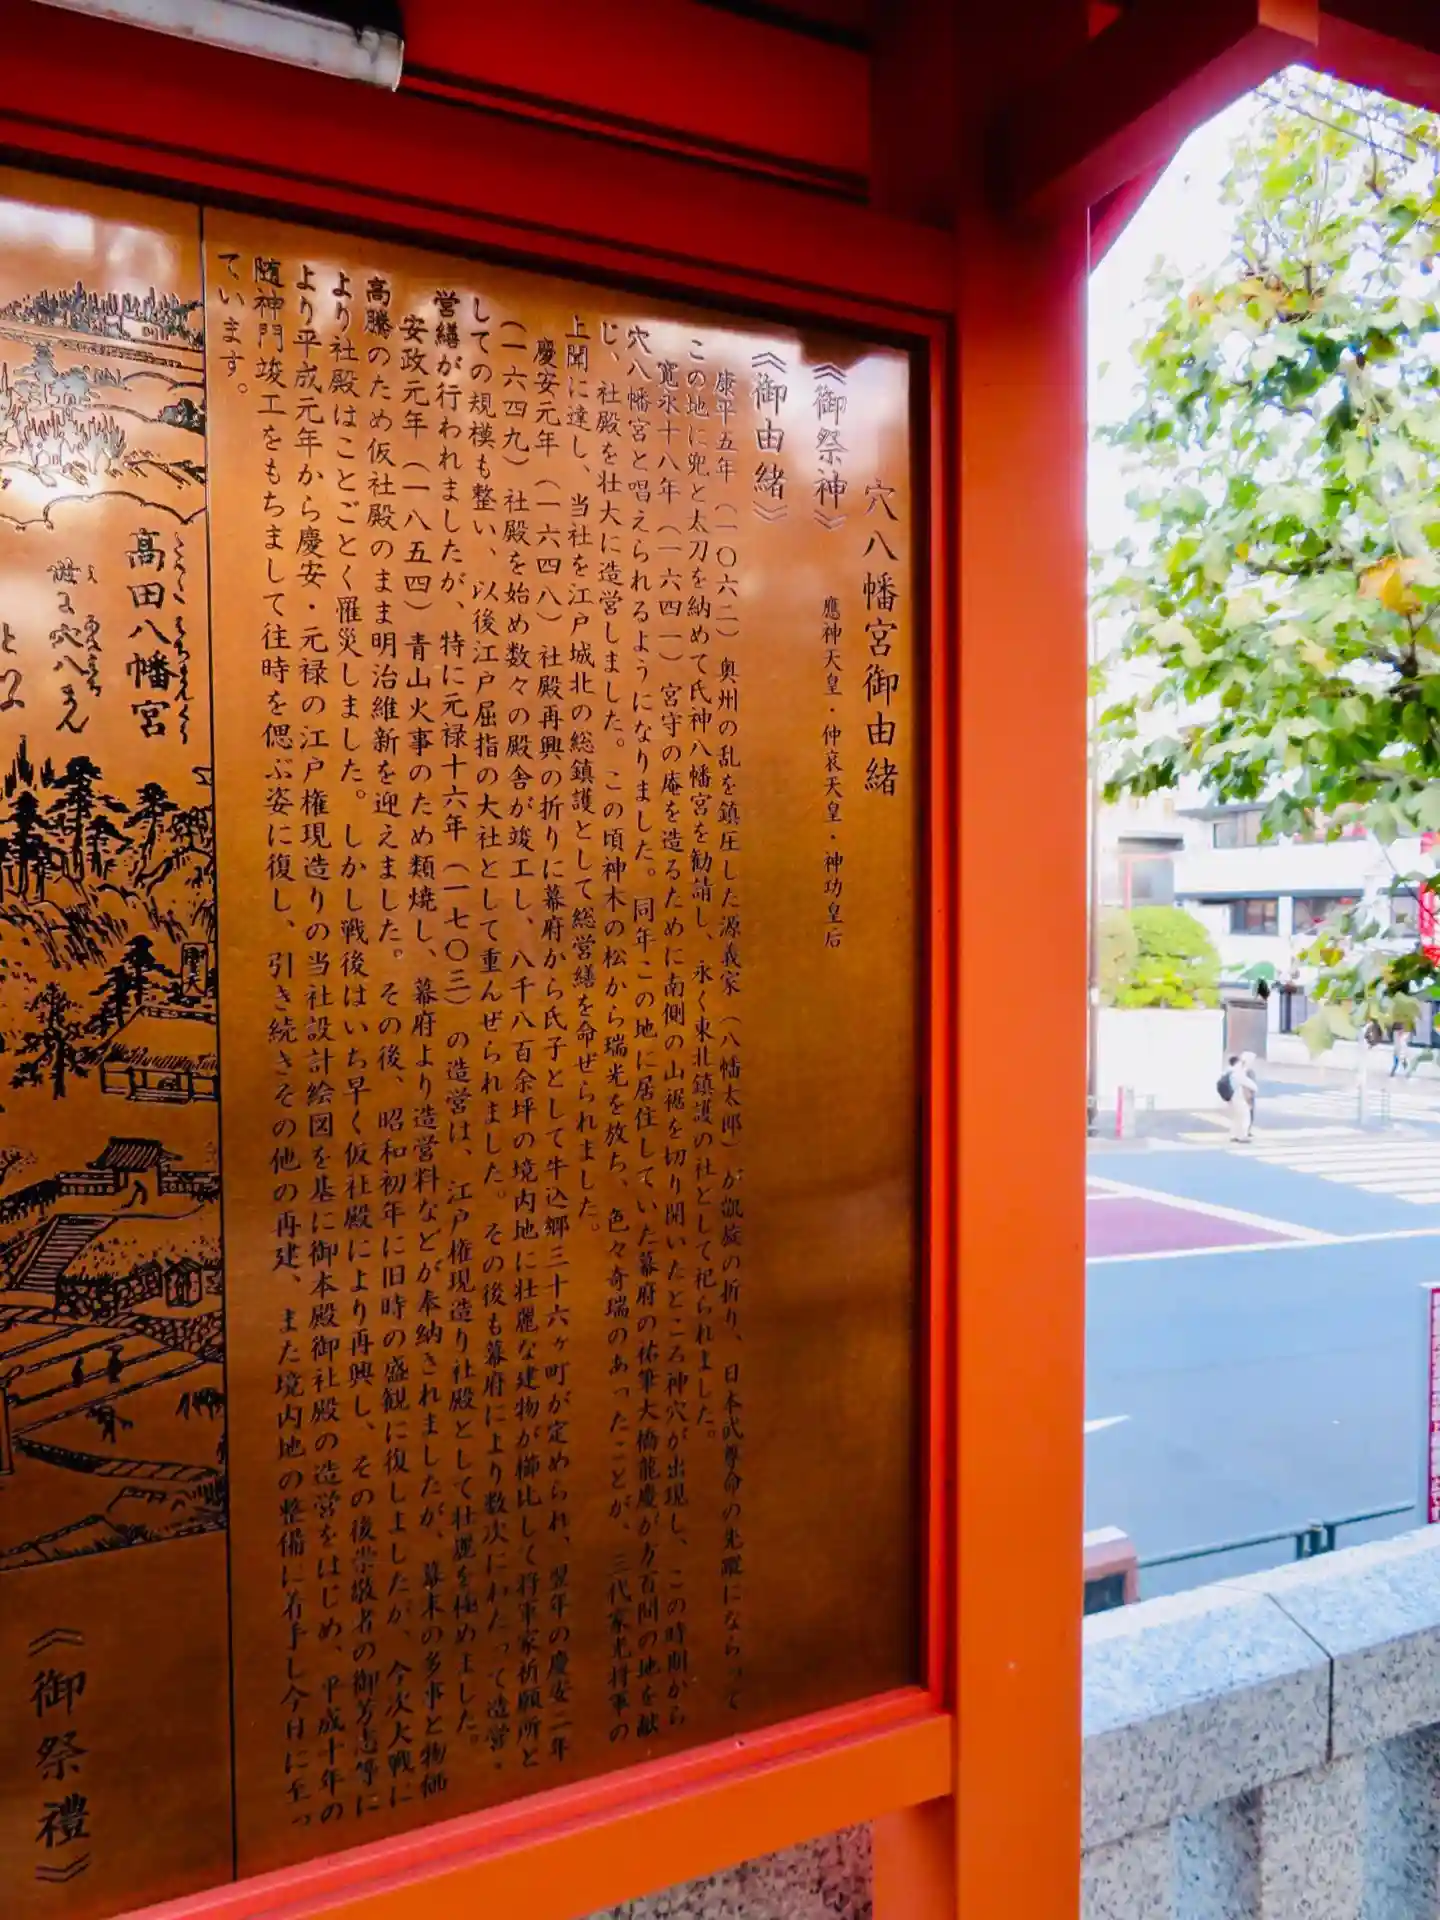 穴八幡宮御由緒
《御祭神》
應神天皇・仲哀天皇・神功皇后
《御由緒》
康平五年(一〇六二)奥州の乱を鎮圧した源義家(八幡太郎)が凱旋の折り、日本武尊命の先蹤にならって
この地に兜と太刀を納めて氏神八幡宮を勧請し、永く東北鎮護の社として祀られました。
寛永十八年(一六四一)宮守の庵を造るために南側の山裾を切り開いたところ神穴が出現し、この時期から
穴八幡宮と唱えられるようになりました。同年この地に居住していた幕府の祐筆大橋龍慶が方百間の地を献
じ、社殿を壮大に造営しました。この頃神木の松から瑞光を放ち、色々奇瑞のあったことが、三代家光将軍の
上聞に達し、当社を江戸城北の総鎮護として総営繕を命ぜられました。
慶安元年(一六四八)社殿再興の折りに幕府から氏子として牛込郷三十六ヶ町が定められ、翌年の慶安二年
(一六四九)社殿を始め数々の殿舎が竣工し、八千八百余坪の境内地に壮麗な建物が櫛比して将軍家祈願所と
しての規模も整い、以後江戸屈指の大社として重んぜられました。その後も幕府により数次にわたって造営・
営繕が行われましたが、特に元禄十六年(一七〇三)の造営は、江戸権現造り社殿として壮麗を極めました。
安政元年(一八五四)青山火事のため類焼し、幕府より造営料などが奉納されましたが、幕末の多事と物価
高騰のため仮社殿のまま明治維新を迎えました。その後、昭和初年に旧時の盛観に復しましたが、今次大戦に
より社殿はことごとく罹災しました。しかし戦後はいち早く仮社殿により再興し、その後崇敬者の御芳志等に
より平成元年から慶安・元禄の江戸権現造りの当社設計絵図を基に御本殿御社殿の造営をはじめ、平成十年の
随神門竣工をもちまして往時を偲ぶ姿に復し、引き続きその他の再建、また境内地の整備に着手し今日に至っ
ています。
高田八幡宮
穴八まん
《御祭禮》